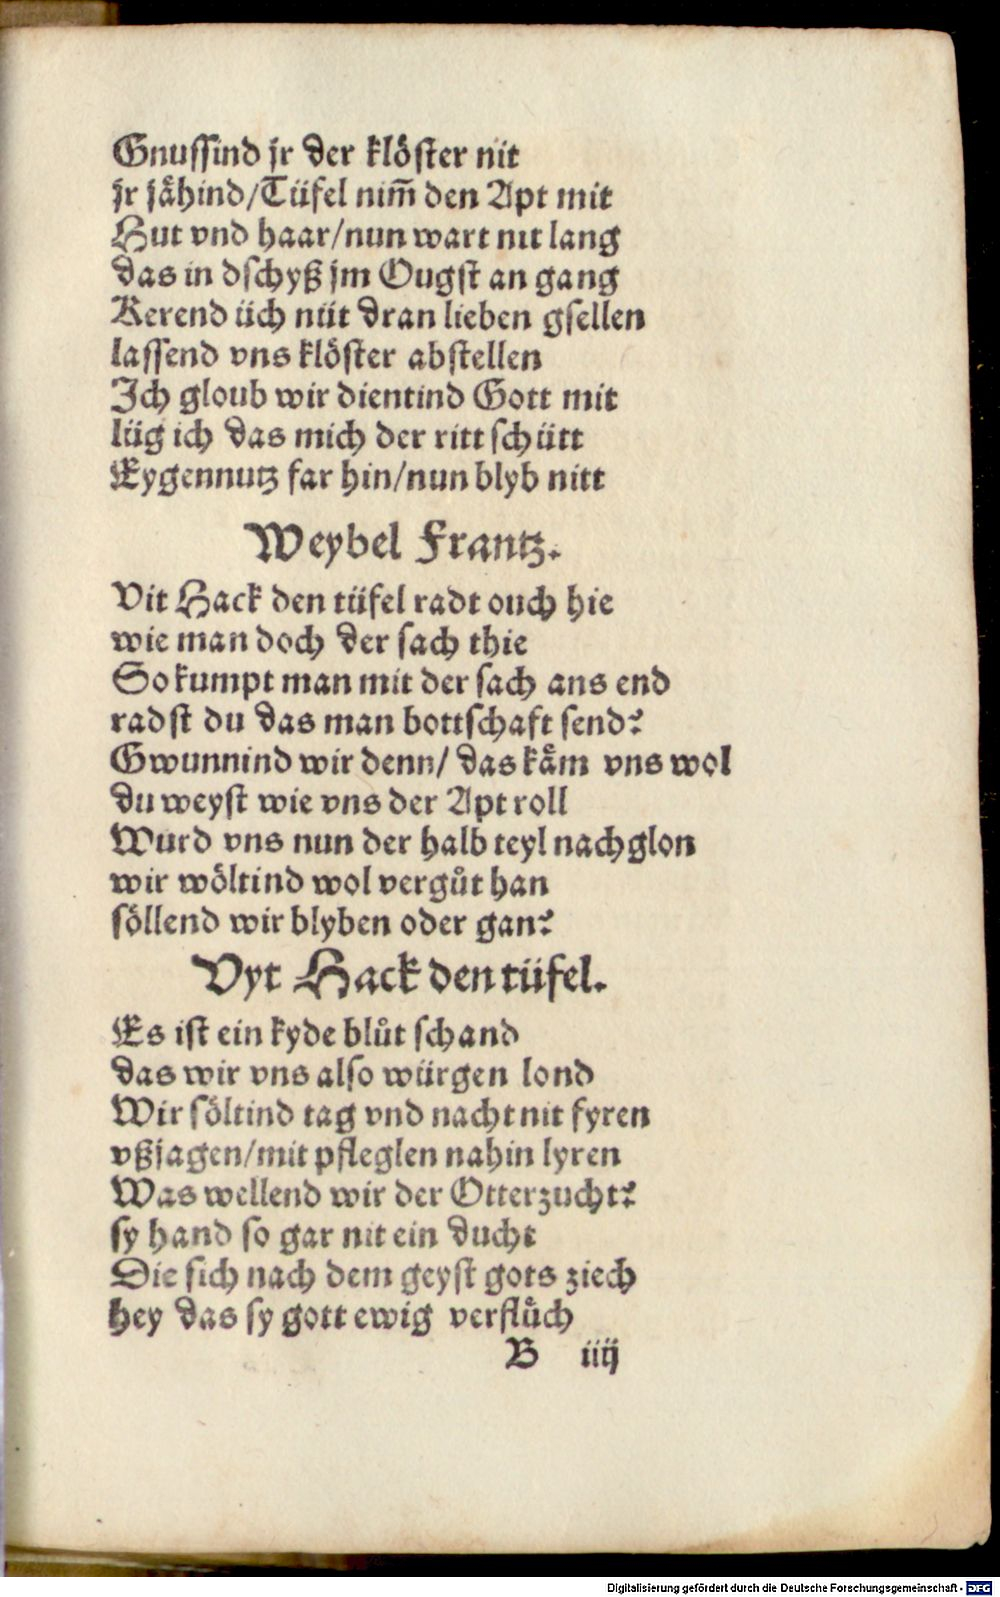 Gnussind jr der klöster nit
jr jaͤhind/Tüfel nim̃ den Apt mit
Hut vnd haar/nun wart nit lang
das in dschyß jm Ougst an gang
Kerend üch nüt dran lieben gsellen
lassend vns klöster abstellen
Ich gloub wir dientind Gott mit
lüg ich das mich der ritt schütt
Eygennutz far hin/nun blyb nitt
Weybel Frantz.
Vit Hack den tüfel radt ouch hie
wie man doch der sach thie
So kumpt man mit der sach ans end
radst du das man bottschaft send?
Gwunnind wir denn/ das kaͤm vns wol
du weyst wie vns der Apt roll
Wurd vns nun der halb teyl nachglon
wir wöltind wol verguͦt han
söllend wir blyben oder gan?
Vyt Hack den tüfel.
Es ist ein kyde bluͦt schand
das wir vns also würgen lond
Wir söltind tag vnd nacht nit fyren
vßjagen/mit pfleglen nahin lyren
Was wellend wir der Otterzucht?
sy hand so gar nit ein ducht
Die sich nach dem geyst gots ziech
hey das sy gott ewig verfluͦch
B iiij
Digitalisierung gefördert durch die Deutsche Forschungsgemeinschaft - DFG